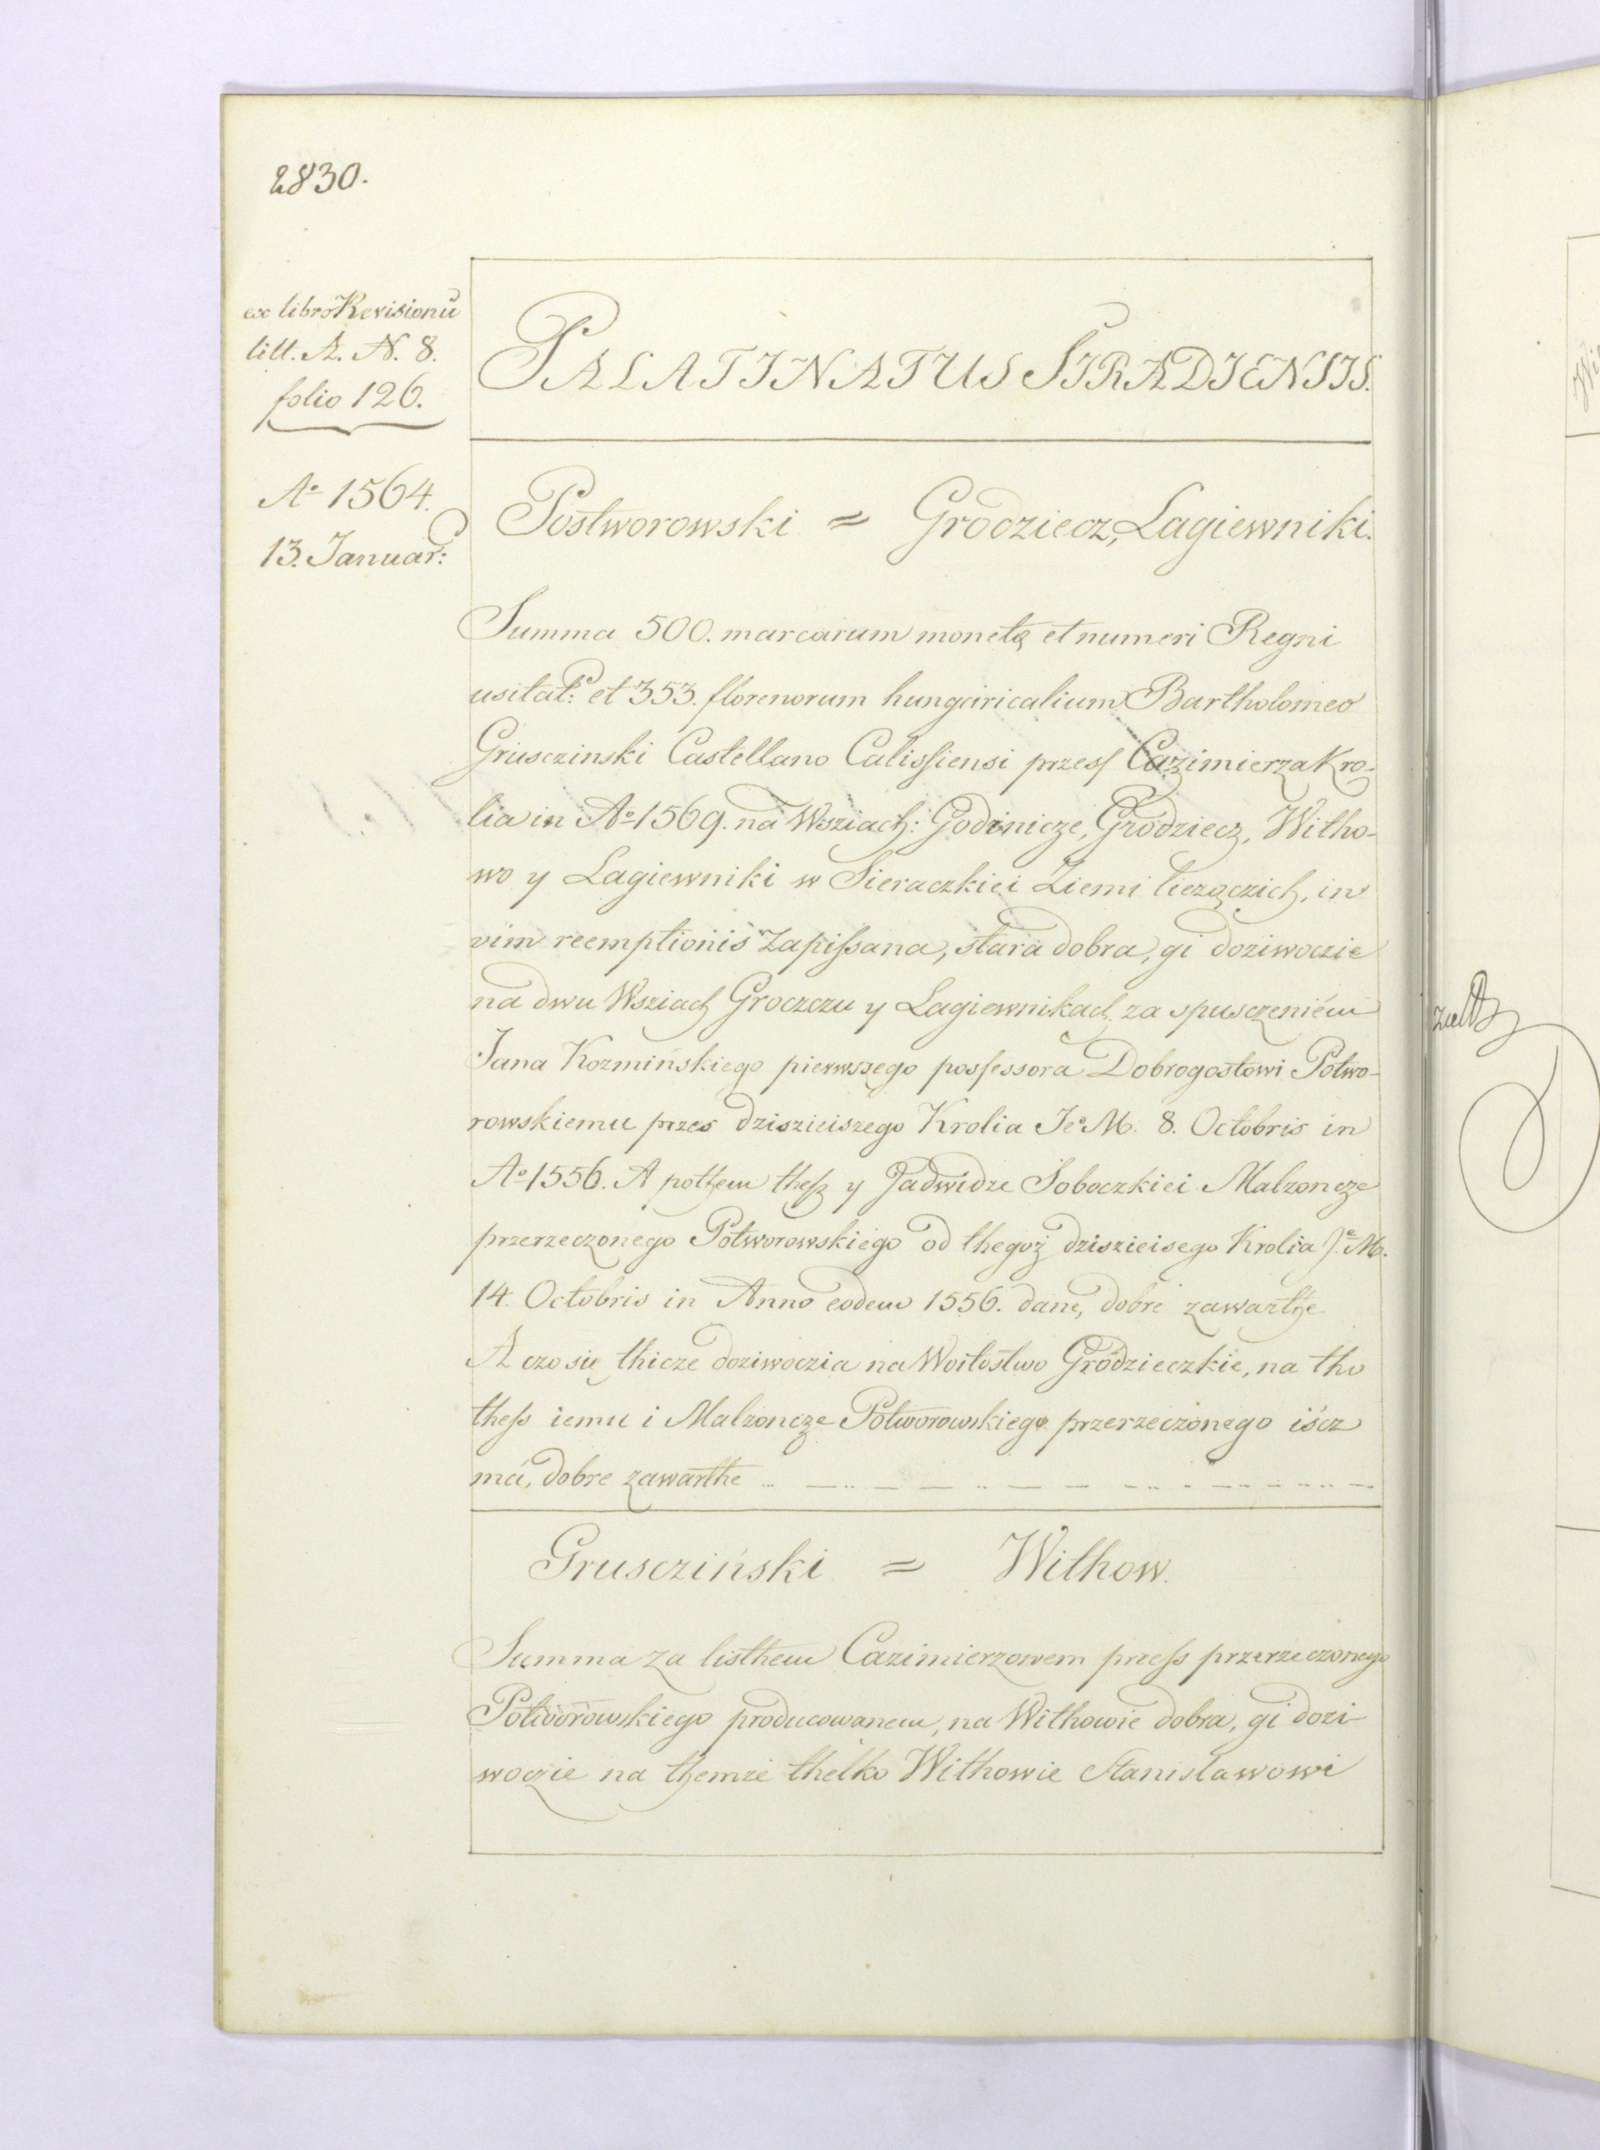 2830.
ex libro Revisionū
litt. A. N. 8.
folio 126.
Aº 1564.
13. Januar:
PALATINATUS SIRADIENSIS.
Postworowski = Grodziecz, Lagiewniki.
Summa 500. marcarum monetę et numeri Regni
usitat: et 353. florenorum hungaricalium Bartholomeo
Grusczinski Castellano Calissiensi przess Cazimierza Kro-
lia in Aº 1569. na Wsziach: Godinicze, Grodziecz, Witho-
wo y Lagiewniki w Sieraczkiei Ziemi liezączich, in
vim reemptionis zapissana, stara dobra, gi doziwoczie
na dwu Wsziach Groczczu y Lagiewnikach za spusczeniem
Jana Kozmińskiego pierwszego possessora Dobrogostowi Potwo-
rowskiemu przes dziszieiszego Krolia Jeº M. 8. Octobris in
Aº 1556. A pothem thesz y Jadwidze Soboczkiei Malzoncze
przerzeczonego Potworowskiego od thegoż dziszieisego Krolia J.e M.
14. Octobris in Anno eodem 1556. dane, dobre zawarthe
A czo się thicze doziwoczia na Woitostwo Grodzieczkie, na tho
thess iemu i Malzoncze Potworowskiego przerzeczonego iścz
má, dobre zawarthe
Gruscziński = Withow.
Summa za listhem Cazimierzowem przess przerzeczonego
Potworowskiego producowanem, na Withowie dobra, gi dozi-
woczie na themze thelko Withowie Stanisławowi